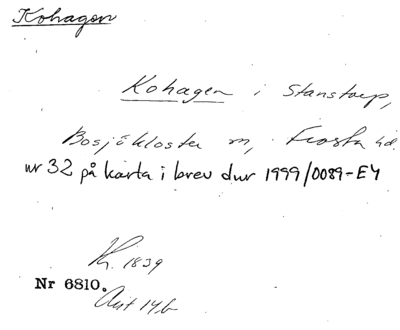 Kohagen
Kohagen i Stanstorp,
Bosjökloster sn, Frosta hd.
nr 32 på karta i brev dnr 1999/0089-EY
Kr. 1839
Nr 6810.
Avt 14/6